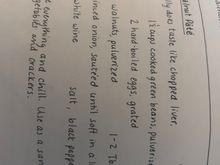 alnut Pâté
ly you taste like chopped liver.
1½ cups cooked green beans, pulveriz
2 hard-boiled eggs, grated
walnuts, pulverized
1-2 Tb
inced onion, sautéed until soft in a li
white wine
salt, black peppe
e everything and chill. Use as a san
egetables and crackers.